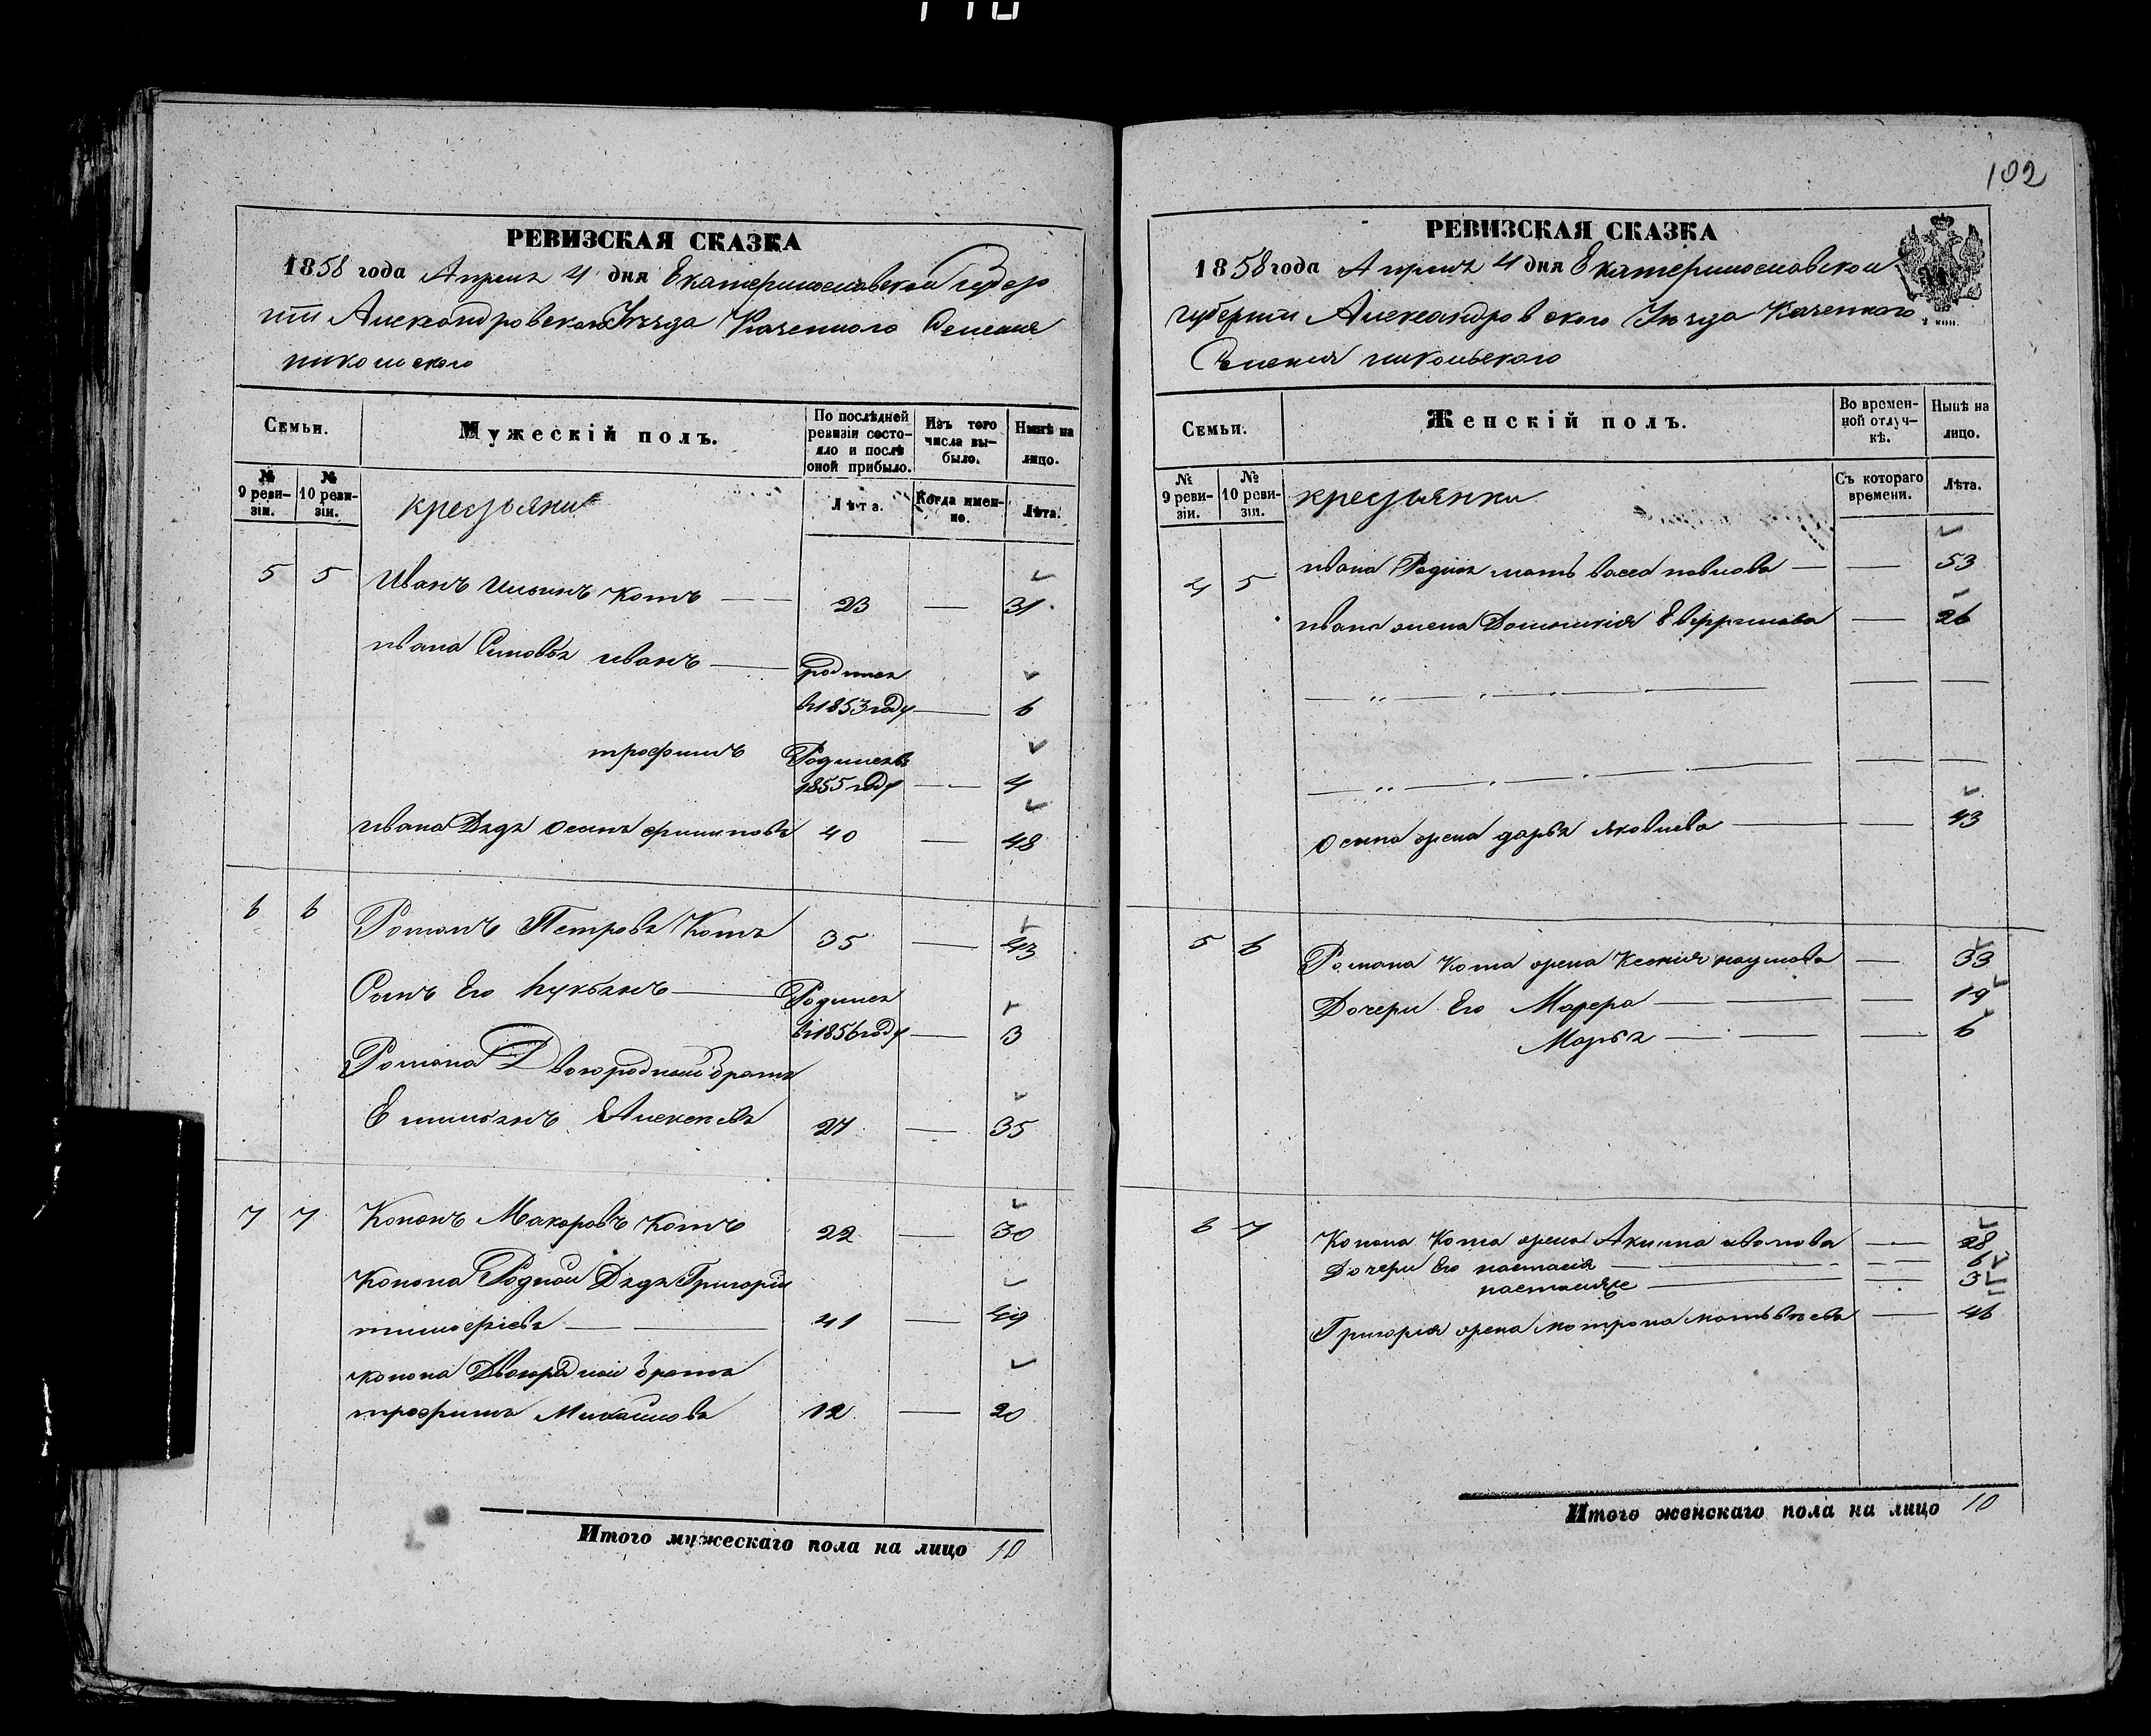 102
РЕВИЗСКАЯ СКАЗКА
1858 года Апреля 4 дня Екатеринославской губер
нии Александровского Уезда Казенного Селения
никольского
Семьи.
Мужескій полъ.
По послѣдней ревизіи состояло и послѣ оной прибыло.
Изъ того числа выбыло.
Нынѣ на лицо.
№ 9 ревизіи.
№ 10 ревизіи.
крестьяни
Лѣта.
Когда именно.
Лѣта.
5 5 Иванъ Ильинъ Котъ — — 23 — 31
ивана Сыновья иванъ — родился
в 1853 году — 6
трофимъ Родился в
1855 году — 4
ивана Дядя Осипъ филиповъ 40 — 48
6 6 Романъ Петровъ Котъ 35 — 43
Сынъ Его Лукьянъ — Родился
в 1856 году — 3
Романа Двоюродный братъ
Емильянъ Алексеевъ 27 — 35
7 7 Кононъ Макаровъ Котъ 22 — 30
Конона Родной Дядя Григорій
тимофеевъ — — 41 — 49
конона Двоюродный братъ
трофимъ Михайловъ 12 — 20
Итого мужескаго пола на лицо 10
РЕВИЗСКАЯ СКАЗКА
1858 года Апреля 4 дня Екатеринославской
губернии Александровского Уезда Казенного
Селения никольского
Семьи.
Женскій полъ.
Во временной отлучкѣ.
Нынѣ на лицо.
№ 9 ревизіи.
№ 10 ревизіи.
крестьянки
Съ котораго времени.
Лѣта.
4 5 ивана мать васса павлова — — 53
ивана жена — 26
Осипа жена дарья яковлева — — 43
5 6 Романа Кота жена Ксения наумова — 33
Дочери Его Марфа — — — 19
Марья — — — 6
6 7 Конона Кота жена Акилина иванова — 28
Дочери Его настасия — — 6
настасия же — — 3
Григория жена мотрона матвеева — 46
Итого женскаго пола на лицо 10